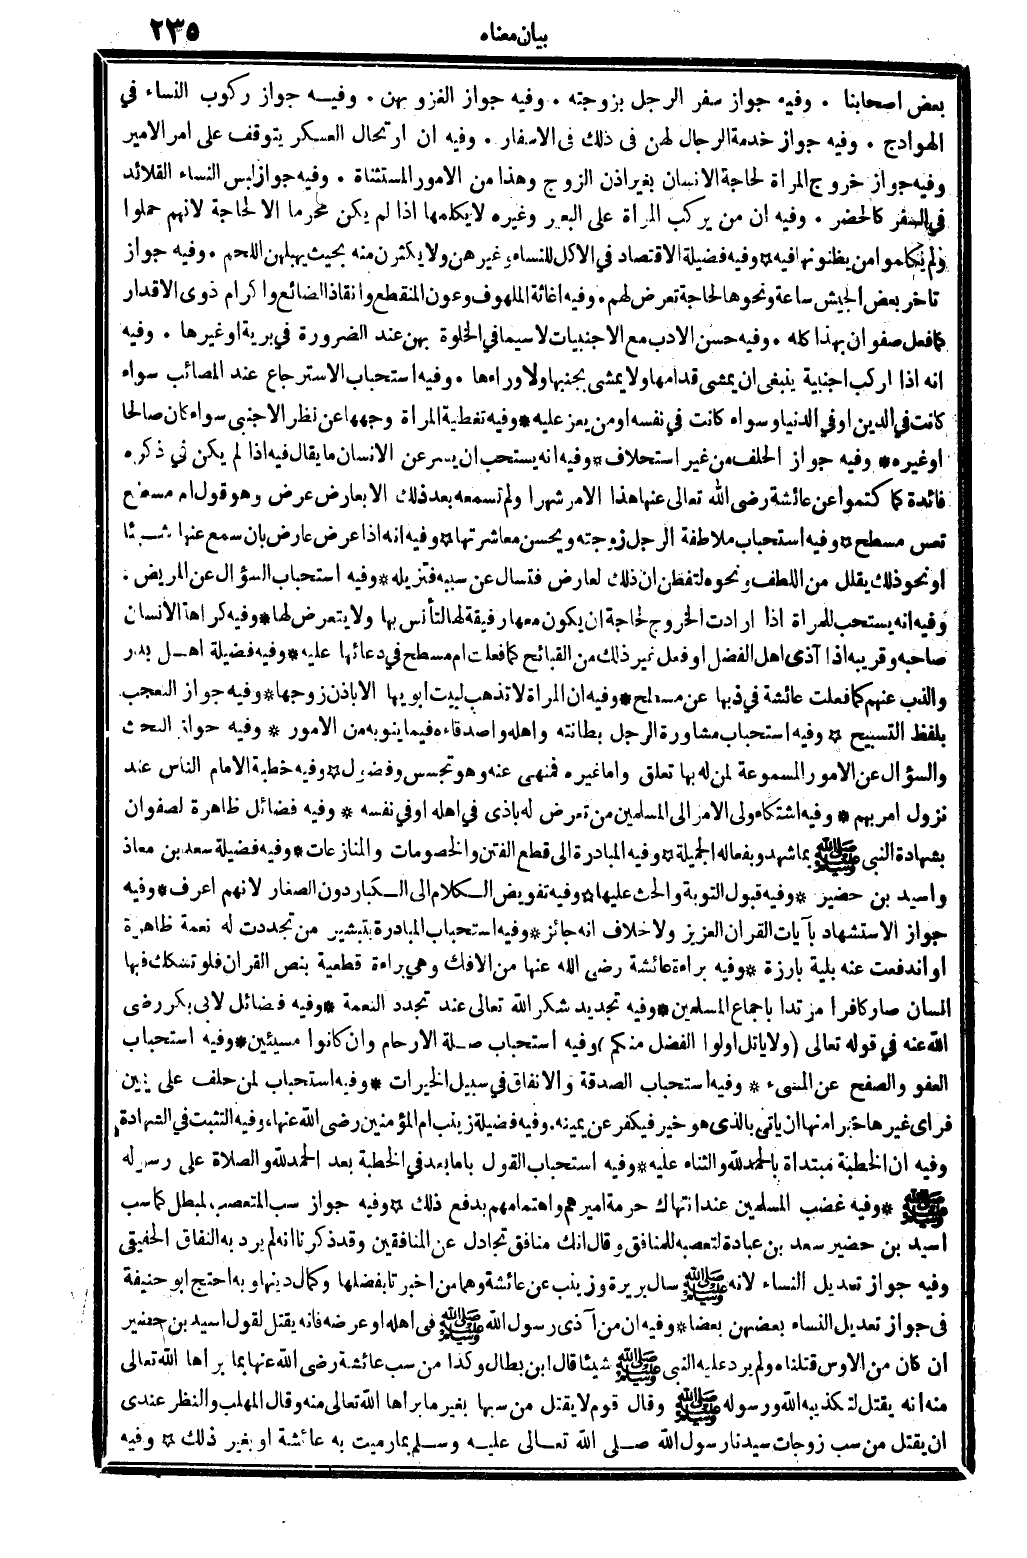 بيان معناه
٢٣٥
بعض اصحابنا ٠ وفيه جواز سفر الرجل بزوجته ٠ وفيه جواز الغزو بهن ٠ وفيه جواز ركوب النساء في
الهوادج ٠ وفيه جواز خدمة الرجال لهن في ذلك في الاسفار ٠ وفيه ان ارتحال العسكر يتوقف على امر الامير
وفيه جواز خروج المرأة لحاجة الانسان بغير اذن الزوج وهذا من الامور المستثناة ٠ وفيه جواز لبس النساء القلائد
في السفر كالحضر ٠ وفيه ان من يركب المرأة على البعير وغيره لا يكلمها اذا لم يكن محرما الا لحاجة لانهم حملوا
ولم يكلموا من يظنونها فيه ☆ وفيه فضيلة الاقتصاد في الاكل للنساء وغيرهن ولا يكثرن منه بحيث يهبلهن اللحم ٠ وفيه جواز
تاخر بعض الجيش ساعة ونحوها لحاجة تعرض لهم ٠ وفيه اغاثة الملهوف وعون المنقطع وانقاذ الضائع واكرام ذوى الاقدار
كما فعل صفوان بهذا كله ٠ وفيه حسن الادب مع الاجنبيات لاسيما في الخلوة بهن عند الضرورة في برية او غيرها ٠ وفيه
انه اذا اركب اجنبية ينبغى ان يمشى قدامها ولا يمشى بجنبها ولا وراءها ٠ وفيه استحباب الاسترجاع عند المصائب سواء
كانت في الدين او في الدنيا وسواء كانت في نفسه او من يعز عليه * وفيه تغطية المرأة وجهها عن نظر الاجنبى سواء كان صالحا
او غيره * وفيه جواز الحلف من غير استحلاف * وفيه انه يستحب ان يستر عن الانسان ما يقال فيه اذا لم يكن في ذكره
فائدة كما كتموا عن عائشة رضى الله تعالى عنها هذا الامر شهرا ولم تسمعه بعد ذلك الا بعارض عرض وهو قول ام مسطح
تعس مسطح ☆ وفيه استحباب ملاطفة الرجل زوجته ويحسن معاشرتها ☆ وفيه انه اذا عرض عارض بان سمع عنها شيئا
او نحو ذلك يقلل من اللطف ونحوه لتفطن ان ذلك لعارض فتسال عن سببه فتزيله * وفيه استحباب السؤال عن المريض ٠
وفيه انه يستحب للمرأة اذا ارادت الخروج لحاجة ان يكون معها رفيقة لها لتأنس بها ولا يتعرض لها * وفيه كراهة الانسان
صاحبه وقريبه اذا آذى اهل الفضل او فعل غير ذلك من القبائح كما فعلت ام مسطح في دعائها عليه * وفيه فضيلة اهل بدر
والذب عنهم كما فعلت عائشة في ذبها عن مسطح * وفيه ان المرأة لا تذهب لبيت ابويها الا باذن زوجها * وفيه جواز التعجب
بلفظ التسبيح ☆ وفيه استحباب مشاورة الرجل بطانته واهله واصدقاءه فيما ينوبه من الامور * وفيه جواز البحث
والسؤال عن الامور المسموعة لمن له بها تعلق واما غيره فمنهى عنه وهو تجسس وفضول ☆ وفيه خطبة الامام الناس عند
نزول امر بهم * وفيه اشتكاء ولى الامر الى المسلمين من تعرض له باذى في اهله او في نفسه * وفيه فضائل ظاهرة لصفوان
بشهادة النبى ﷺ بما شهد وبفعاله الجميلة ☆ وفيه المبادرة الى قطع الفتن والخصومات والمنازعات * وفيه فضيلة سعد بن معاذ
واسيد بن حضير * وفيه قبول التوبة والحث عليها ☆ وفيه تفويض الكلام الى الكبار دون الصغار لانهم اعرف * وفيه
جواز الاستشهاد بآيات القرآن العزيز ولا خلاف انه جائز * وفيه استحباب المبادرة بتبشير من تجددت له نعمة ظاهرة
او اندفعت عنه بلية بارزة * وفيه براءة عائشة رضى الله عنها من الافك وهي براءة قطعية بنص القرآن فلو تشكك فيها
انسان صار كافرا مرتدا باجماع المسلمين * وفيه تجديد شكر الله تعالى عند تجدد النعمة * وفيه فضائل لابى بكر رضى
الله عنه في قوله تعالى (ولا ياتل اولوا الفضل منكم) وفيه استحباب صلة الارحام وان كانوا مسيئين * وفيه استحباب
العفو والصفح عن المسىء * وفيه استحباب الصدقة والانفاق في سبيل الخيرات * وفيه استحباب لمن حلف على يمين
فراى غيرها خيرا منها ان ياتى بالذى هو خير فيكفر عن يمينه ٠ وفيه فضيلة زينب ام المؤمنين رضى الله عنها ٠ وفيه التثبت في الشهادة
وفيه ان الخطبة مبتدأة بالحمد لله والثناء عليه * وفيه استحباب القول باما بعد في الخطبة بعد الحمد لله والصلاة على رسوله
ﷺ * وفيه غضب المسلمين عند انتهاك حرمة اميرهم واهتمامهم بدفع ذلك ☆ وفيه جواز سب المتعصب لمبطل كما سب
اسيد بن حضير سعد بن عبادة لتعصبه للمنافق وقال انك منافق تجادل عن المنافقين وقد ذكرنا انه لم يرد به النفاق الحقيقى
وفيه جواز تعديل النساء لانه ﷺ سال بريرة وزينب عن عائشة وهما من اخبرتا بفضلها وكمال دينها وبه احتج ابو حنيفة
فى جواز تعديل النساء بعضهن بعضا * وفيه ان من آذى رسول الله ﷺ فى اهله او عرضه فانه يقتل لقول اسيد بن حضير
ان كان من الاوس قتلناه ولم يرد عليه النبى ﷺ شيئا قال ابن بطال وكذا من سب عائشة رضى الله عنها بما برأها الله تعالى
منه انه يقتل لتكذيبه الله ورسوله ﷺ وقال قوم لا يقتل من سبها بغير ما برأها الله تعالى منه وقال المهلب والنظر عندى
ان يقتل من سب زوجات سيدنا رسول الله صلى الله تعالى عليه وسلم بما رميت به عائشة او بغير ذلك ☆ وفيه